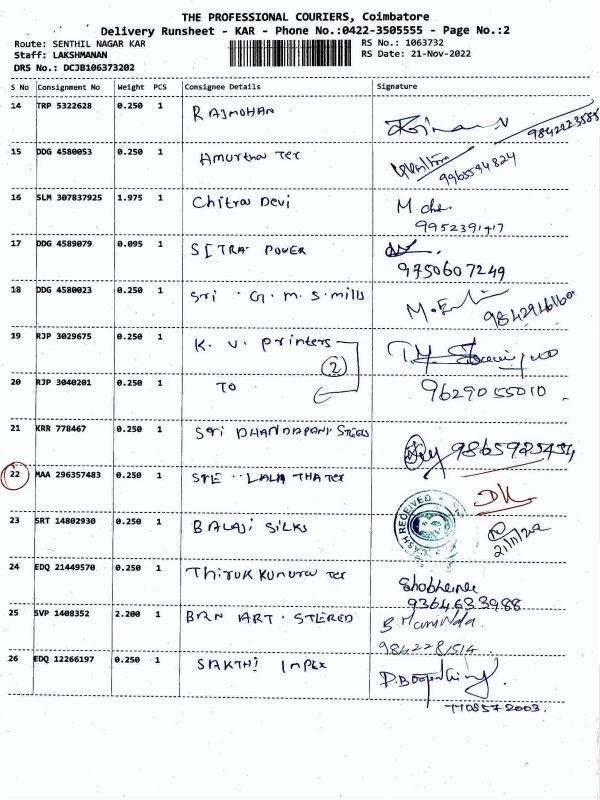 THE PROFESSIONAL COURIERS, Coimbatore
Delivery Runsheet - KAR - Phone No.:0422-3505555 - Page No.:2
Route: SENTHIL NAGAR KAR RS No.: 1063732
Staff: LAKSHMANAN RS Date: 21-Nov-2022
DRS No.: DCJB106373202
S No Consignment No Weight PCS Consignee Details Signature
14 TRP 5322628 0.250 1 RAJMOHAN
9842223585
15 DDG 4580053 0.250 1 Amurtha Tex
9965594824
16 SLM 307837925 1.975 1 Chitra Devi M. che
9952391417
17 DDG 4589079 0.095 1 SITRA POWER
9750607249
18 DDG 4580023 0.250 1 Sri G. m. s. mills
19 RJP 3029675 0.250 1 K. V. Printers
(2)
20 RJP 3040201 0.250 1 TO 9629055010
21 KRR 778467 0.250 1 Sri DHANDAPANI STEELS 9865925434
22 MAA 296357483 0.250 1 SREE LALA THA Tex
CASH RECEIVED
23 SRT 14802930 0.250 1 BALAJI SILKS
24 EDQ 21449570 0.250 1 Thirukkumura Tex
9364633988
25 SVP 1408352 2.200 1 BRN ART. STERED
9842281514
26 EDQ 12266197 0.250 1 SAKTHI IMPEX
7708572003.